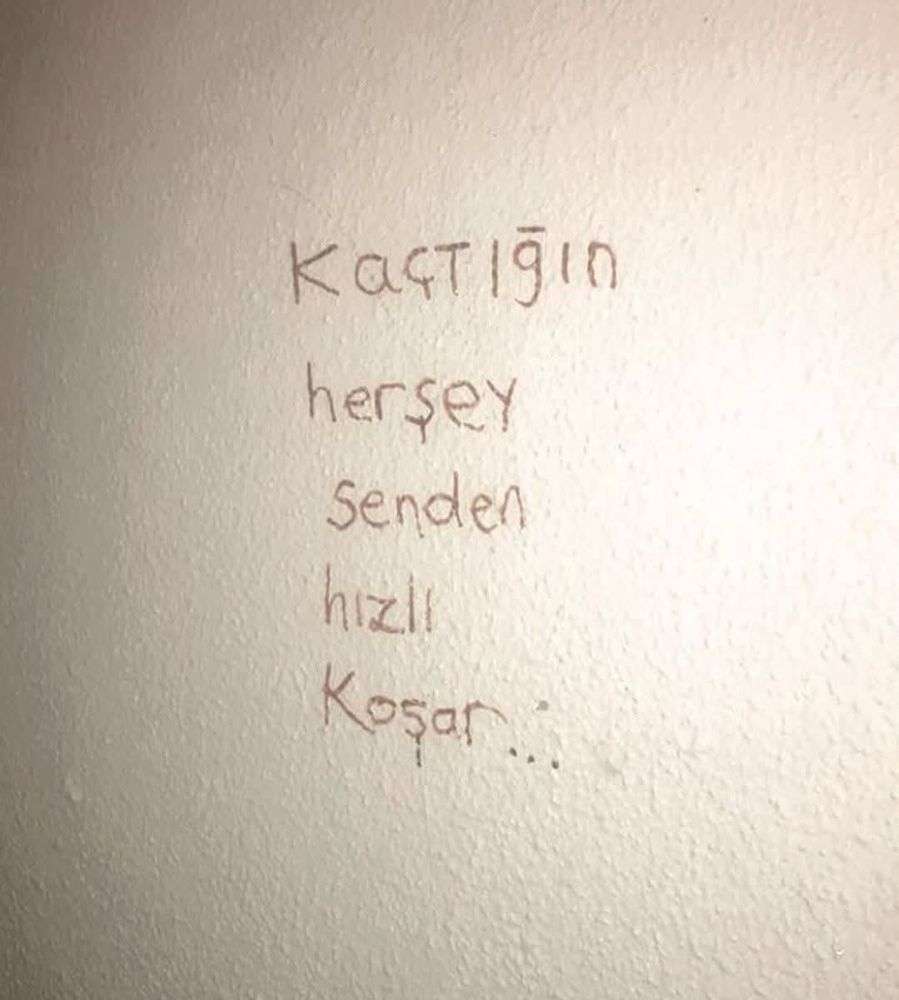 Kaçtığın
herşey
senden
hızlı
Koşar...